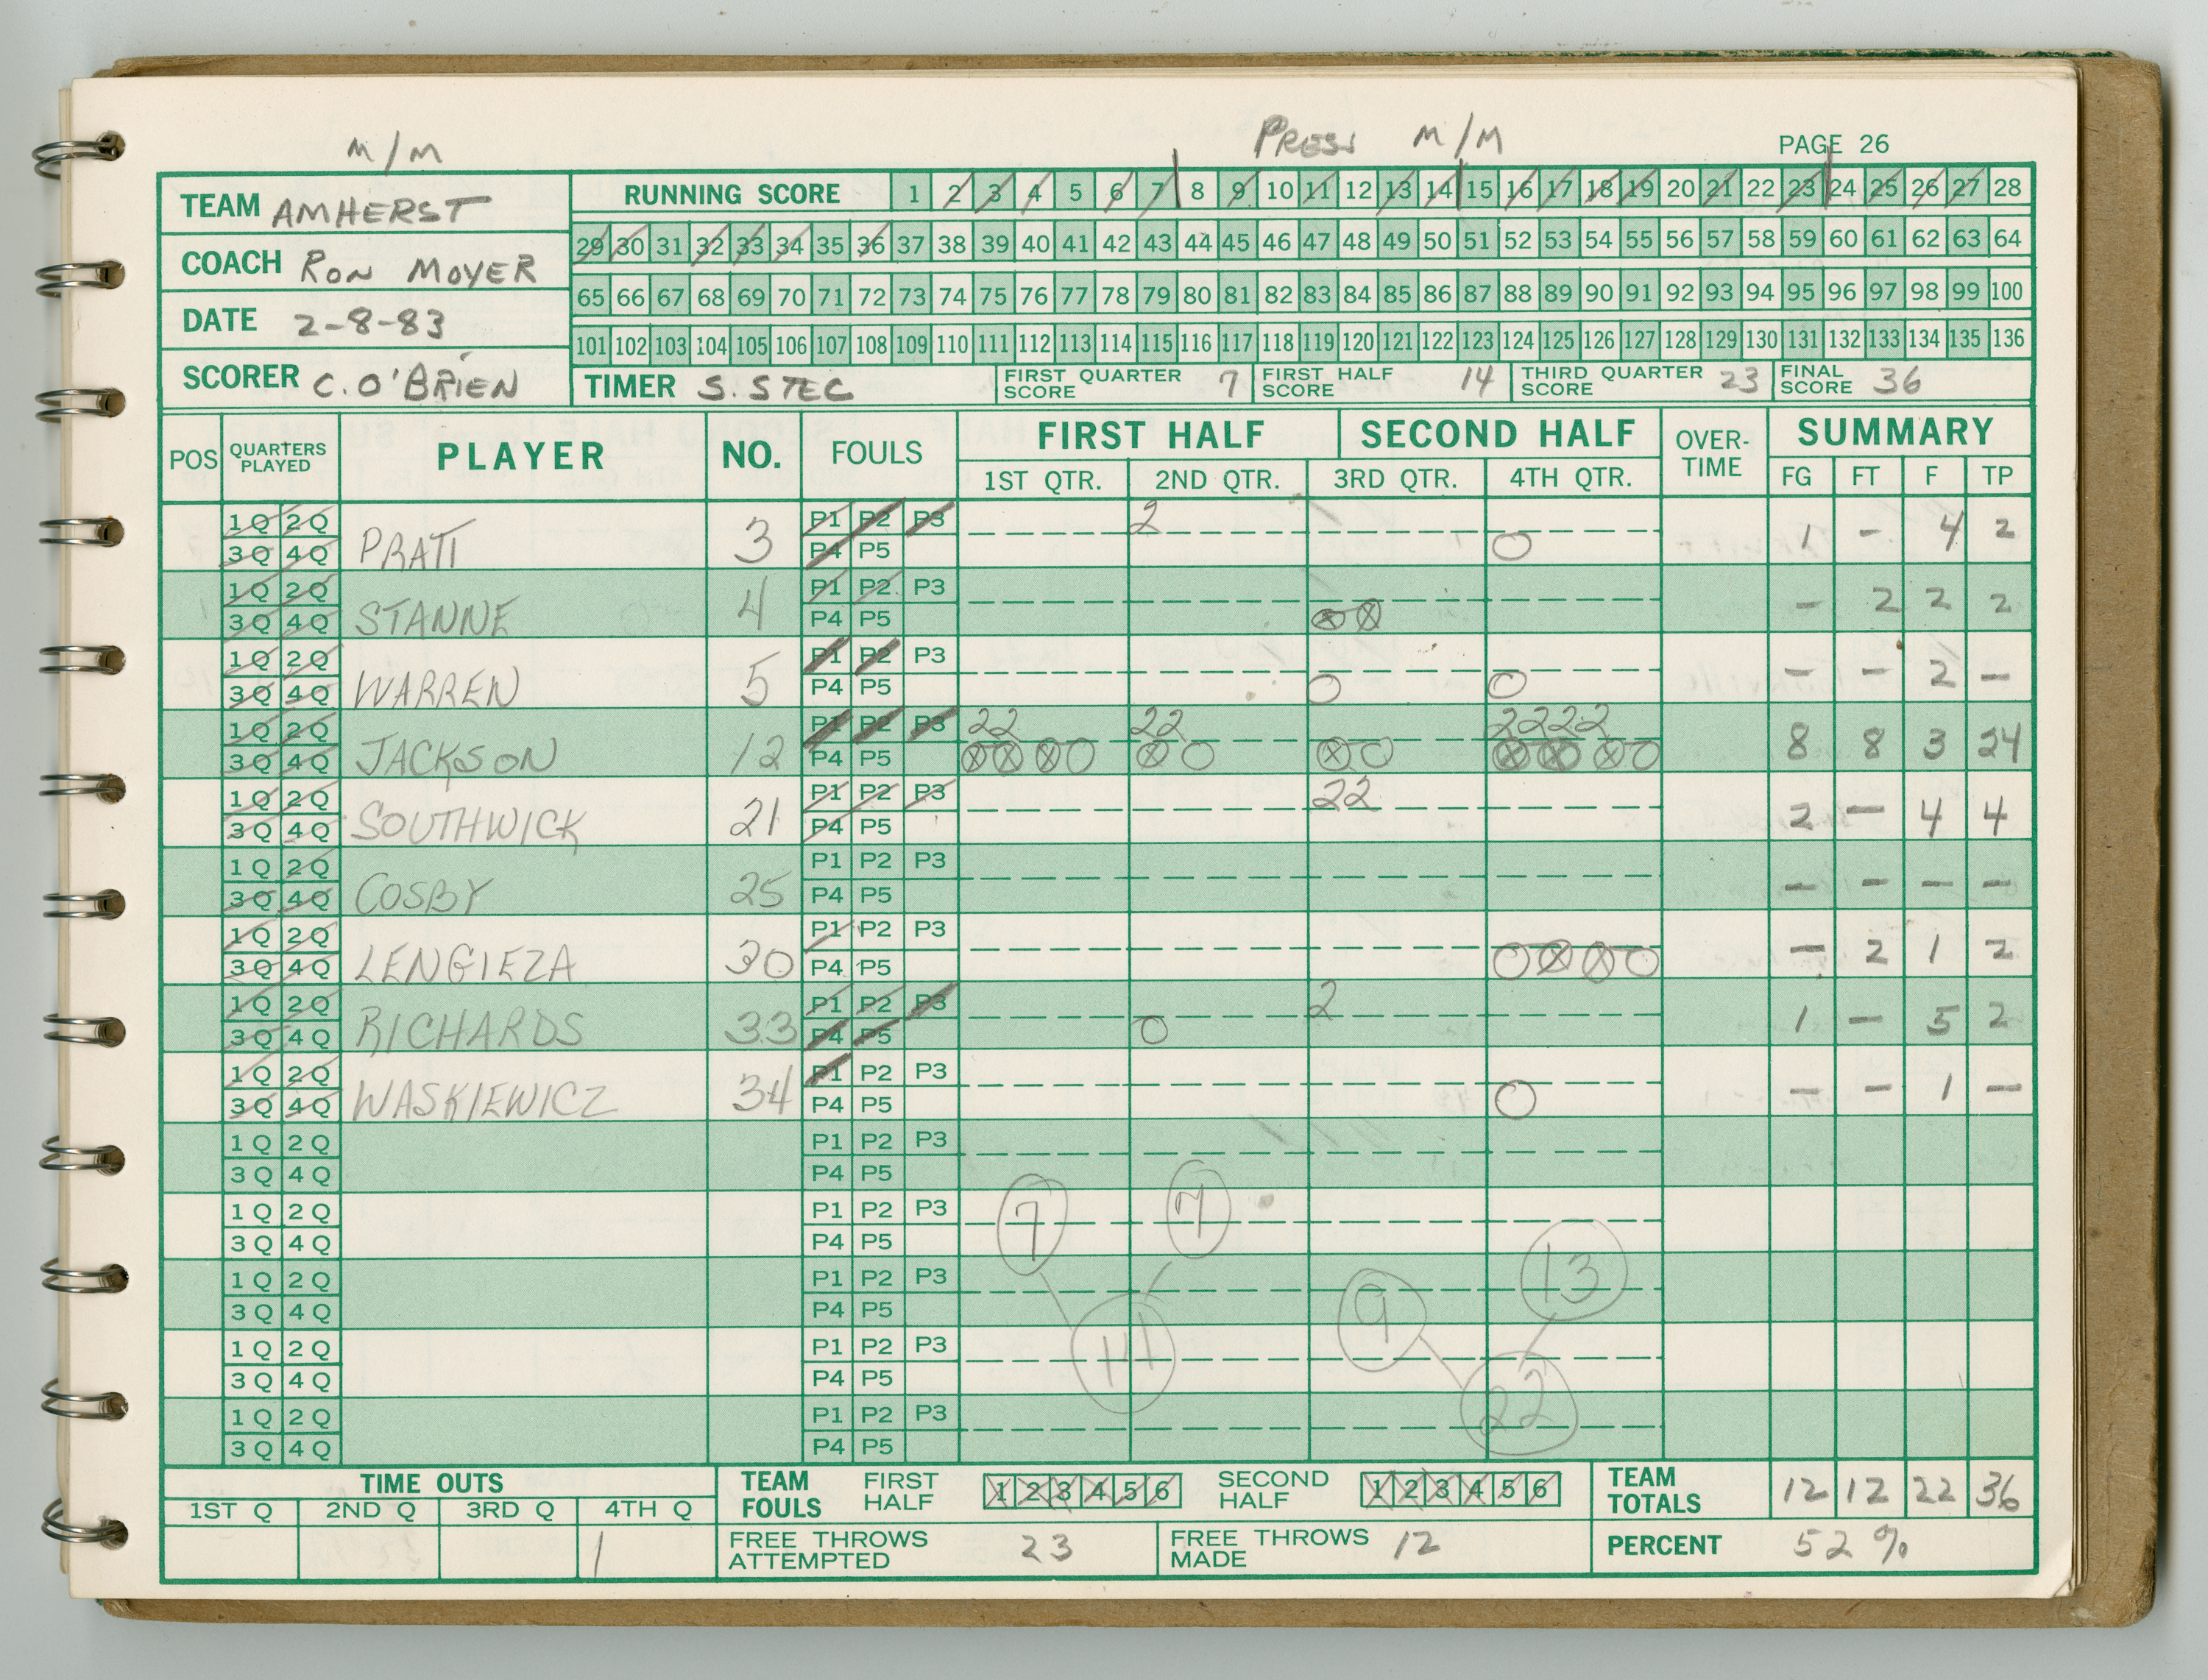 M/M PRESS M/M PAGE 26
TEAM AMHERST
COACH RON MOYER
DATE 2-8-83
SCORER C. O'BRIEN
RUNNING SCORE 1 2 3 4 5 6 7 8 9 10 11 12 13 14 15 16 17 18 19 20 21 22 23 24 25 26 27 28
29 30 31 32 33 34 35 36 37 38 39 40 41 42 43 44 45 46 47 48 49 50 51 52 53 54 55 56 57 58 59 60 61 62 63 64
65 66 67 68 69 70 71 72 73 74 75 76 77 78 79 80 81 82 83 84 85 86 87 88 89 90 91 92 93 94 95 96 97 98 99 100
101 102 103 104 105 106 107 108 109 110 111 112 113 114 115 116 117 118 119 120 121 122 123 124 125 126 127 128 129 130 131 132 133 134 135 136
TIMER S. STEC FIRST QUARTER SCORE 7 FIRST HALF SCORE 14 THIRD QUARTER SCORE 23 FINAL SCORE 36
POS QUARTERS PLAYED PLAYER NO. FOULS FIRST HALF SECOND HALF OVER-TIME SUMMARY
1ST QTR. 2ND QTR. 3RD QTR. 4TH QTR. FG FT F TP
1Q 2Q P1 P2 P3 2
3Q 4Q PRATT 3 P4 P5 1 - 4 2
1Q 2Q P1 P2 P3
3Q 4Q STANNE 4 P4 P5 - 2 2 2
1Q 2Q P1 P2 P3
3Q 4Q WARREN 5 P4 P5 - - 2 -
1Q 2Q P1 P2 P3 22 22 2222
3Q 4Q JACKSON 12 P4 P5 8 8 3 24
1Q 2Q P1 P2 P3 22
3Q 4Q SOUTHWICK 21 P4 P5 2 - 4 4
1Q 2Q P1 P2 P3
3Q 4Q COSBY 25 P4 P5 - - - -
1Q 2Q P1 P2 P3
3Q 4Q LENGIEZA 30 P4 P5 - 2 1 2
1Q 2Q P1 P2 P3 2
3Q 4Q RICHARDS 33 P4 P5 1 - 5 2
1Q 2Q P1 P2 P3
3Q 4Q WASKIEWICZ 34 P4 P5 - - 1 -
1Q 2Q P1 P2 P3
3Q 4Q P4 P5
1Q 2Q P1 P2 P3 7 7
3Q 4Q P4 P5
1Q 2Q P1 P2 P3 13
3Q 4Q P4 P5 9
1Q 2Q P1 P2 P3 14
3Q 4Q P4 P5
1Q 2Q P1 P2 P3 22
3Q 4Q P4 P5
TIME OUTS
1ST Q 2ND Q 3RD Q 4TH Q
1
TEAM FOULS FIRST HALF 1 2 3 4 5 6 SECOND HALF 1 2 3 4 5 6
TEAM TOTALS 12 12 22 36
FREE THROWS ATTEMPTED 23 FREE THROWS MADE 12
PERCENT 52%